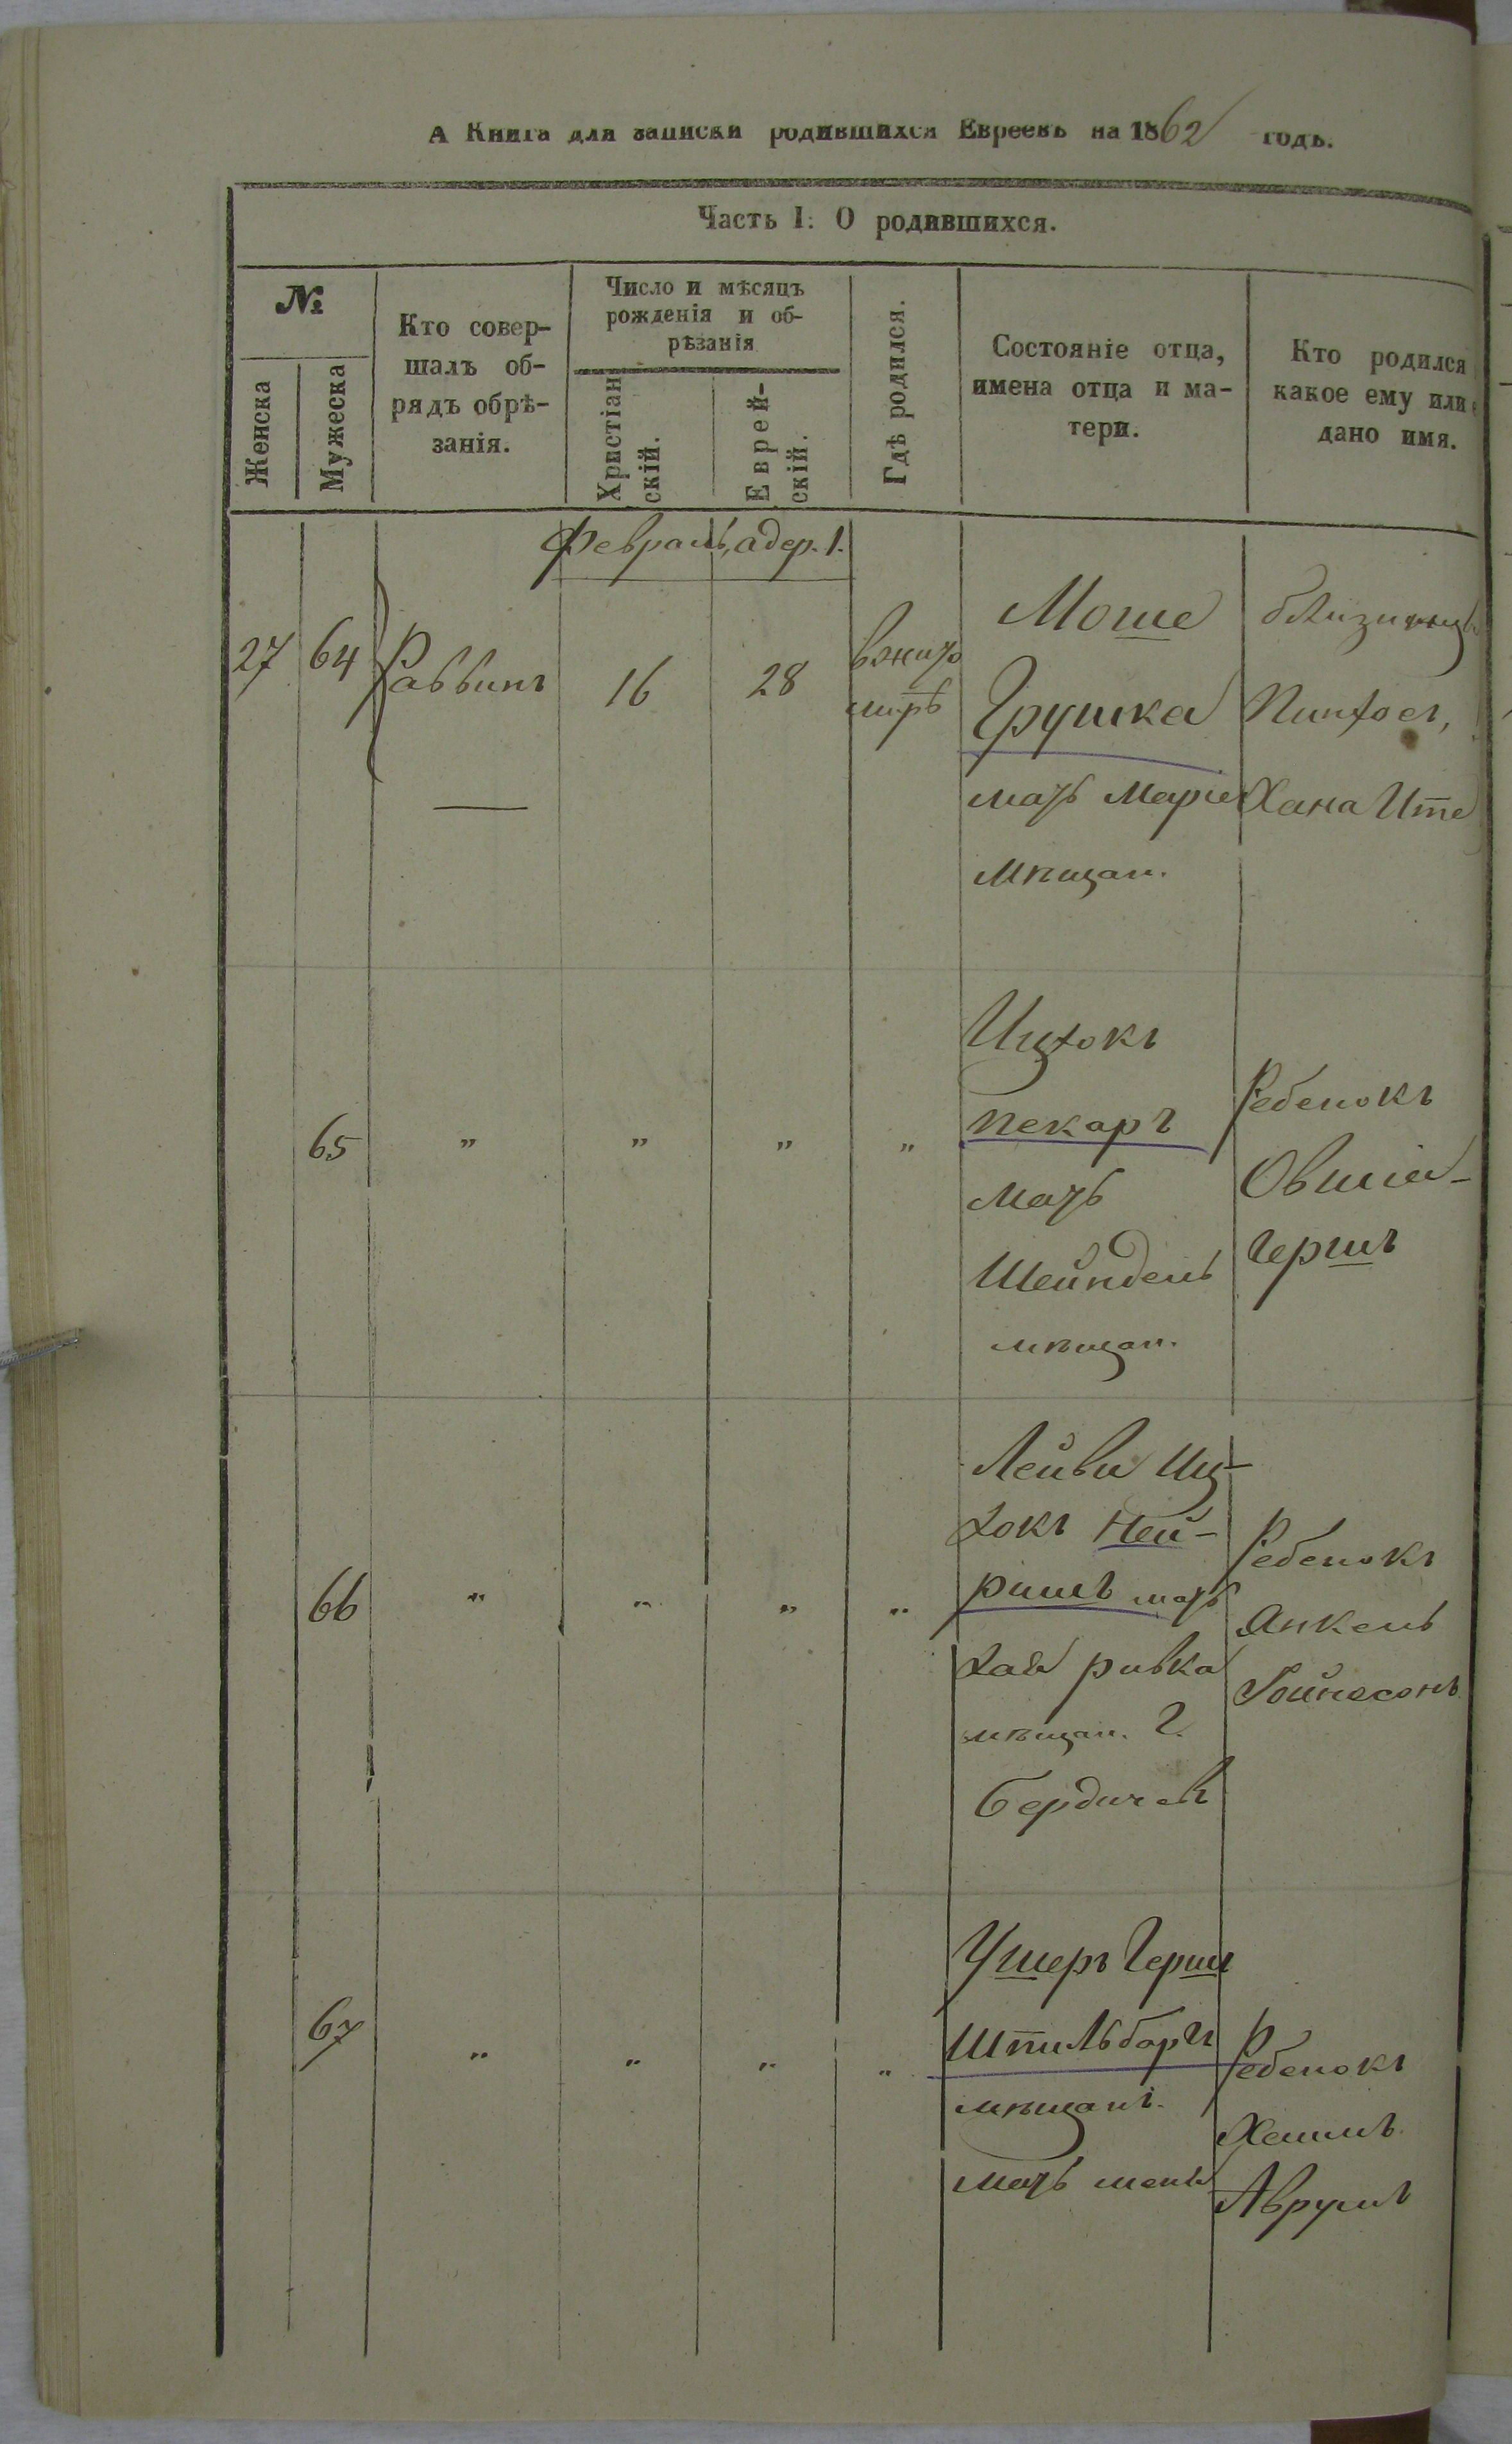 А Книга для записки родившихся Евреевъ на 1862 годъ.
Часть I: О родившихся.
№
Женска
Мужеска
Кто совер-
шалъ об-
рядъ обрѣ-
занія.
Число и мѣсяцъ
рожденія и об-
рѣзанія
Христіан
скій.
Еврей-
скій.
Гдѣ родился.
Состояніе отца,
имена отца и ма-
тери.
Кто родился
какое ему или
дано имя.
Февраль, адер. 1.
27 64 Раввинъ 16 28
вжито
мирѣ
Моше
Грушка
мать
мѣщан.
Пинхос,
Хана Ите
65 " " " "
Ицхокъ
пекарь
мать
Шейндель
мѣщан.
Ребенокъ
Овшіа-
Гершъ
66 " " " "
Лейви Иц-
хокъ Ней-
ришъ мать
хая ривка
мѣщан. г.
Бердичев
Ребенокъ
Янкель
67 " " " "
Ушеръ Герш
Шпильбарг
мѣщанъ.
мать
Ребенокъ
Хаимъ
Аврумъ